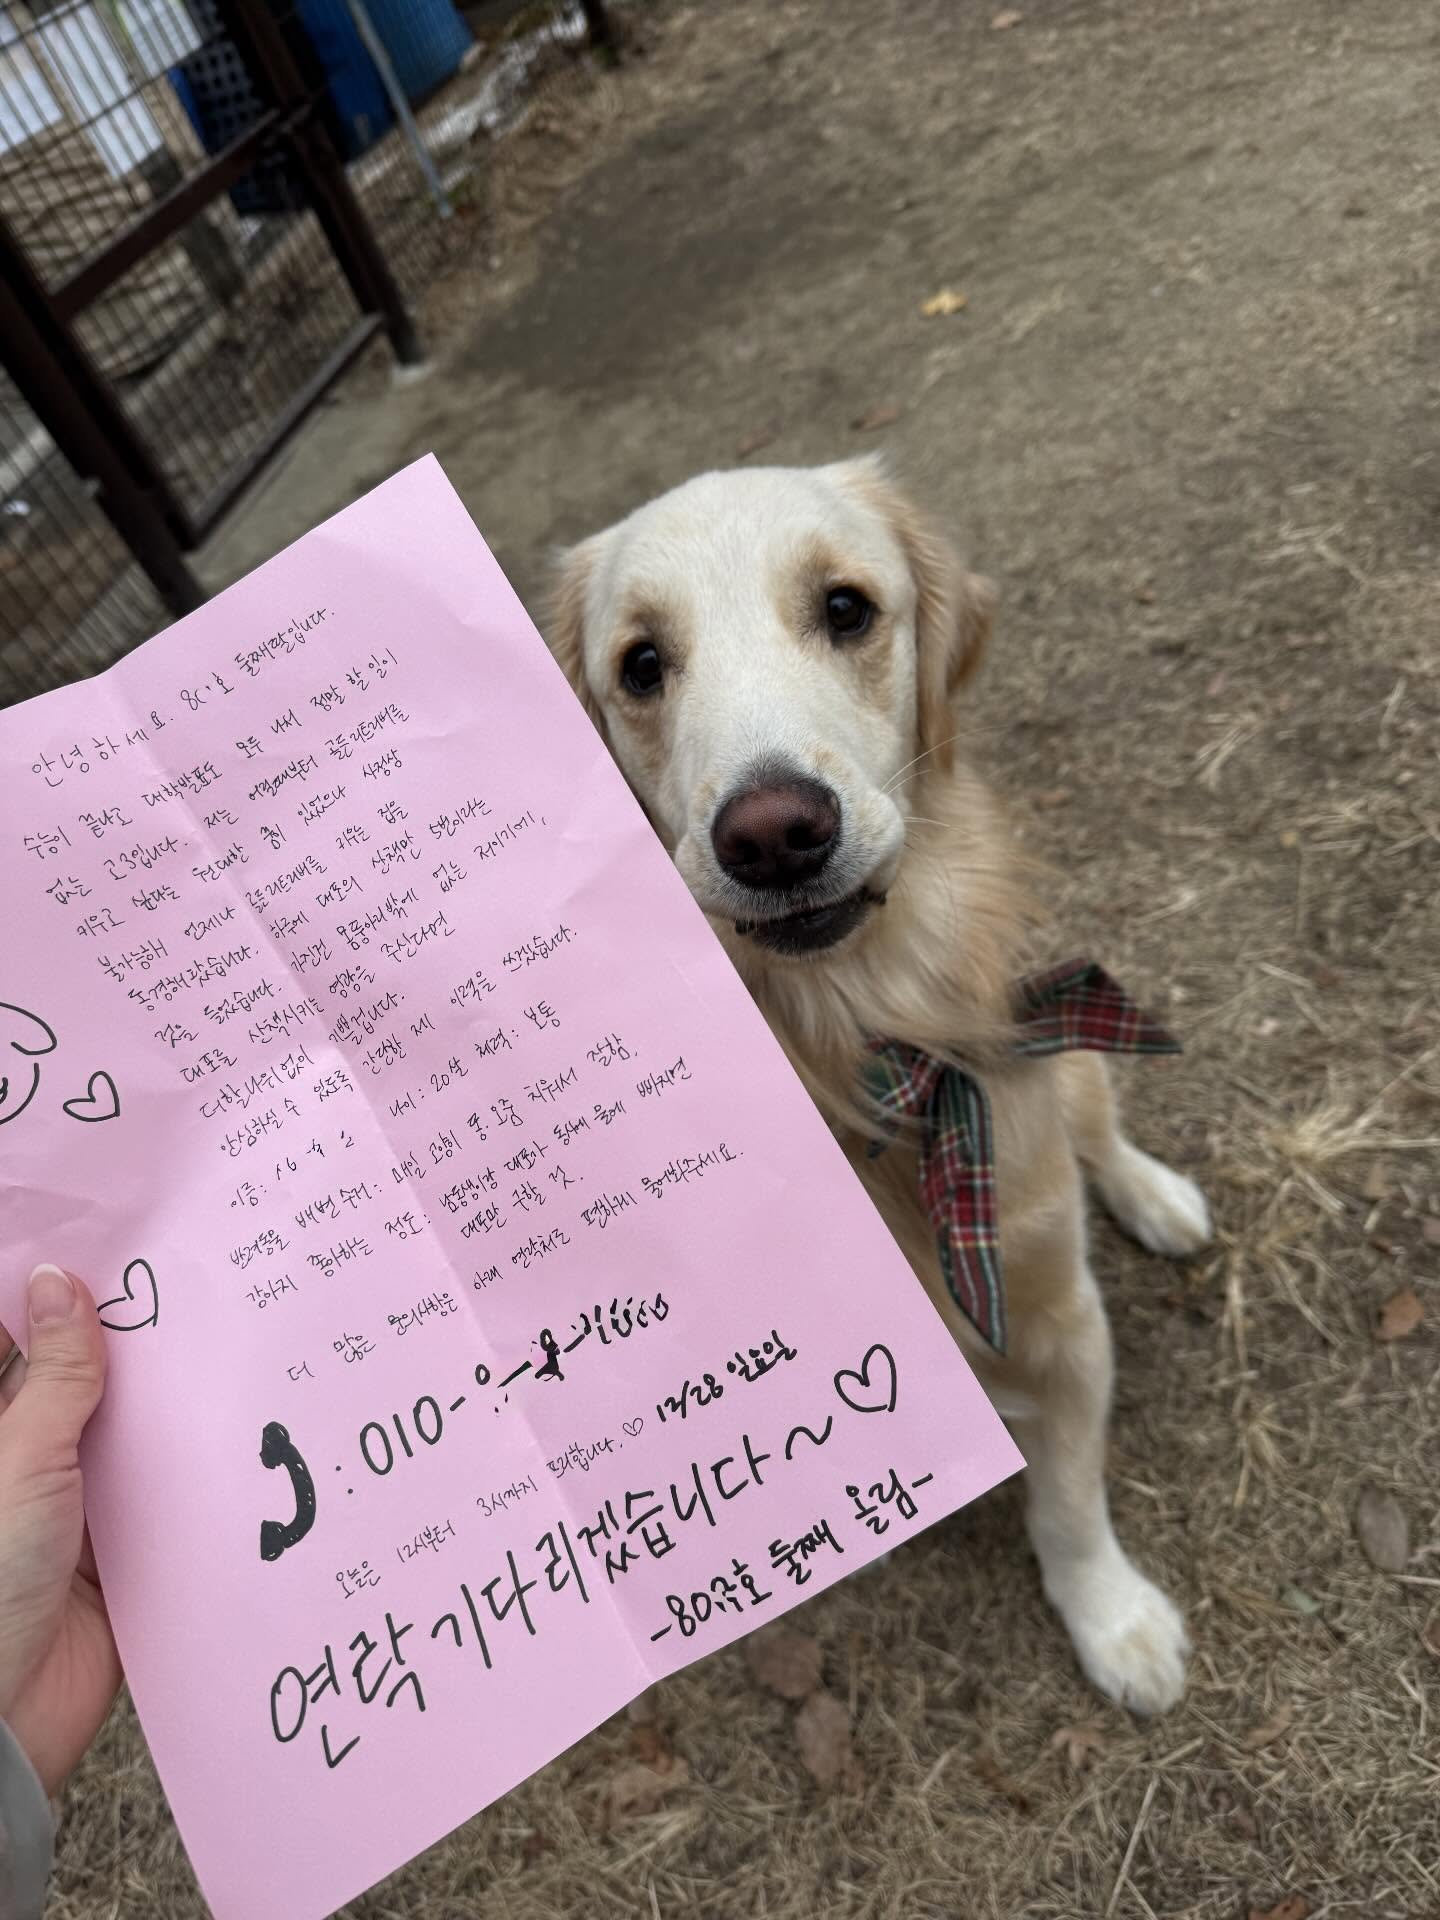 안녕하세요. 호 둘째딸입니다.
수능이 끝나고 대학발표도 모두 나서 정말 할 일이
없는 고3입니다. 저는 어릴때부터 골든리트리버를
키우고 싶다는 원대한 꿈이 있었으나 사정상
불가능해 언제나 골든리트리버를 키우는 집을
동경해왔습니다. 하루에 대포의 산책만 5번이라는
것을 들었습니다. 가진건 몸뚱아리밖에 없는 저이기에,
대포를 산책시키는 영광을 주신다면
더할나위없이 기쁠겁니다.
안심하실 수 있도록 간단한 제 이력을 쓰겠습니다.
이름: 나이: 20살 체력: 보통
반려동물 배변수거: 매일 고양이 똥.오줌 치워서 잘함.
강아지 좋아하는 정도: 남동생이랑 대포가 동시에 물에 빠지면
대포만 구할 것.
더 많은 문의사항은 아래 연락처로 편하게 물어봐주세요.
: 010-
오늘은 12시부터 3시까지 프리합니다.♡ 12/28 일요일
연락 기다리겠습니다~♡
호 둘째 올림-